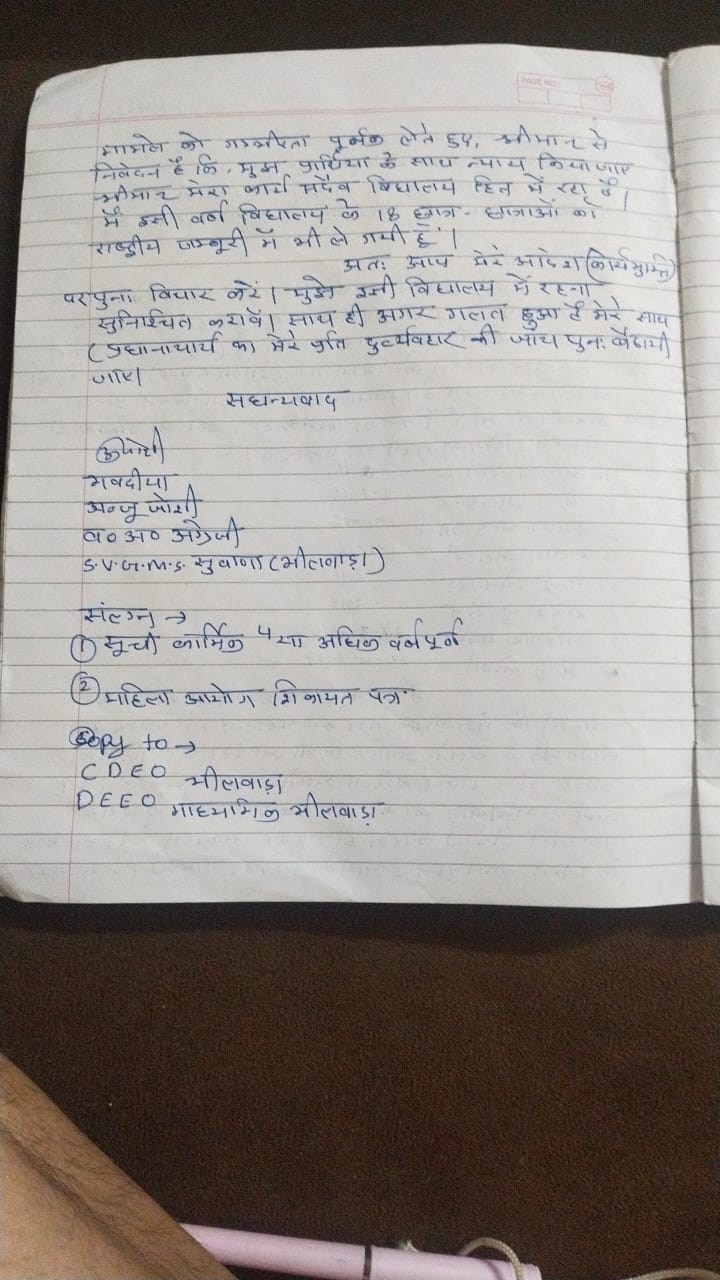 PAGE NO.:
मामले को गम्भीरता पूर्वक लेते हुए, श्रीमान से
निवेदन है कि, मुझ प्रार्थिया के साथ न्याय किया जाए
श्रीमान मेरा कार्य सदैव विद्यालय हित में रहा है।
मैं इसी वर्ष विद्यालय के 18 छात्र-छात्राओं को
राष्ट्रीय जम्बूरी में भी ले गयी हूँ।
अतः आप मेरे आदेश (कार्यमुक्ति)
पर पुनः विचार करें। मुझे इसी विद्यालय में रहना
सुनिश्चित करावें। साथ ही अगर गलत हुआ है मेरे साथ
(प्रधानाचार्य का मेरे प्रति दुर्व्यवहार की जाँच पुनः बैठायी
जाए।
सधन्यवाद
भवदीया
अन्जू जोशी
व० अ० अंग्रेजी
S.V.G.M.S. सुवाणा (भीलवाड़ा)
संलग्न →
① सूची कार्मिक 5 या अधिक वर्ष पूर्ण
② महिला आयोग शिकायत पत्र
Copy to →
CDEO भीलवाड़ा
DEEO माध्यमिक भीलवाड़ा